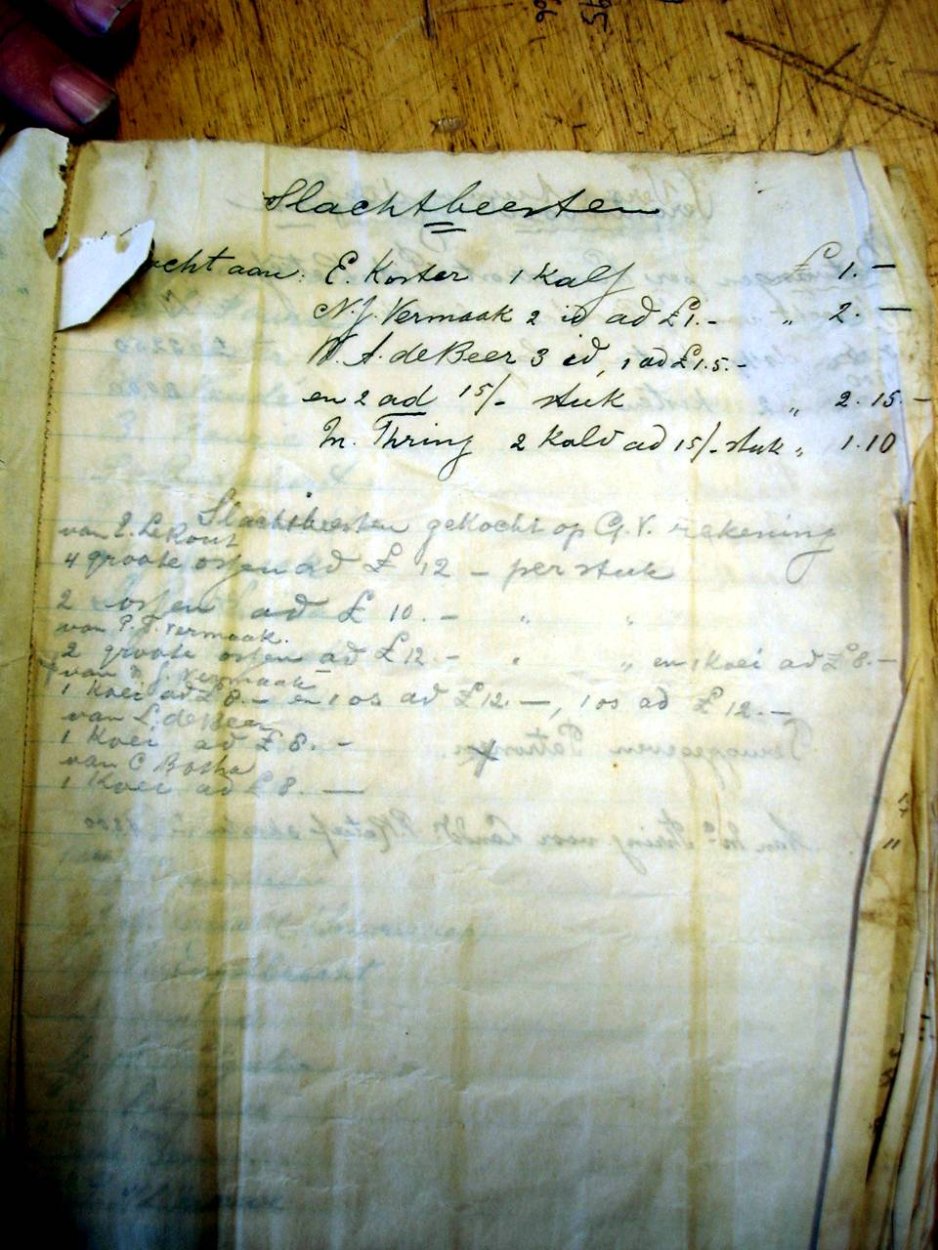 Slachtbeesten
ocht aan: E. Koster 1 Kalf £ 1.—
N. J. Vermaak 2 id ad £1.- „ 2. —
A. de Beer 3 id, 1 ad £1.5.-
en 2 ad 15/- stuk „ 2.15.-
M. Thring 2 Kalv ad 15/- stuk „ 1.10
Slachtbeesten gekocht op G.V. rekening
van
4 groote ossen ad £ 12 - per stuk
2 ossen ad £ 10.- „ „
van P. J. Vermaak.
2 groote ossen ad £12.- „ „ en 1 Koei ad £8.-
van J. Vermaak
1 Koei ad £8.- en 1 os ad £12.—, 1 os ad £12.—
van L. de Beer
1 Koei ad £8.-
van C Botha
1 Koei ad £8. —